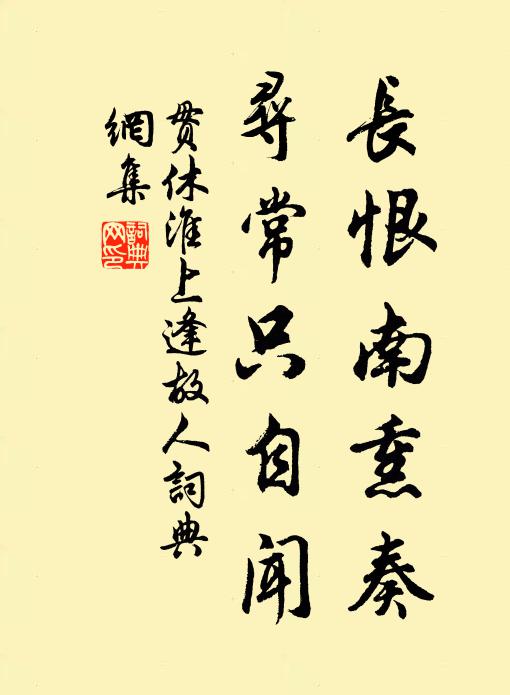 長恨南熏奏
尋常只自闻
贯休淮上逢故人詞典
網集
詞典
网印